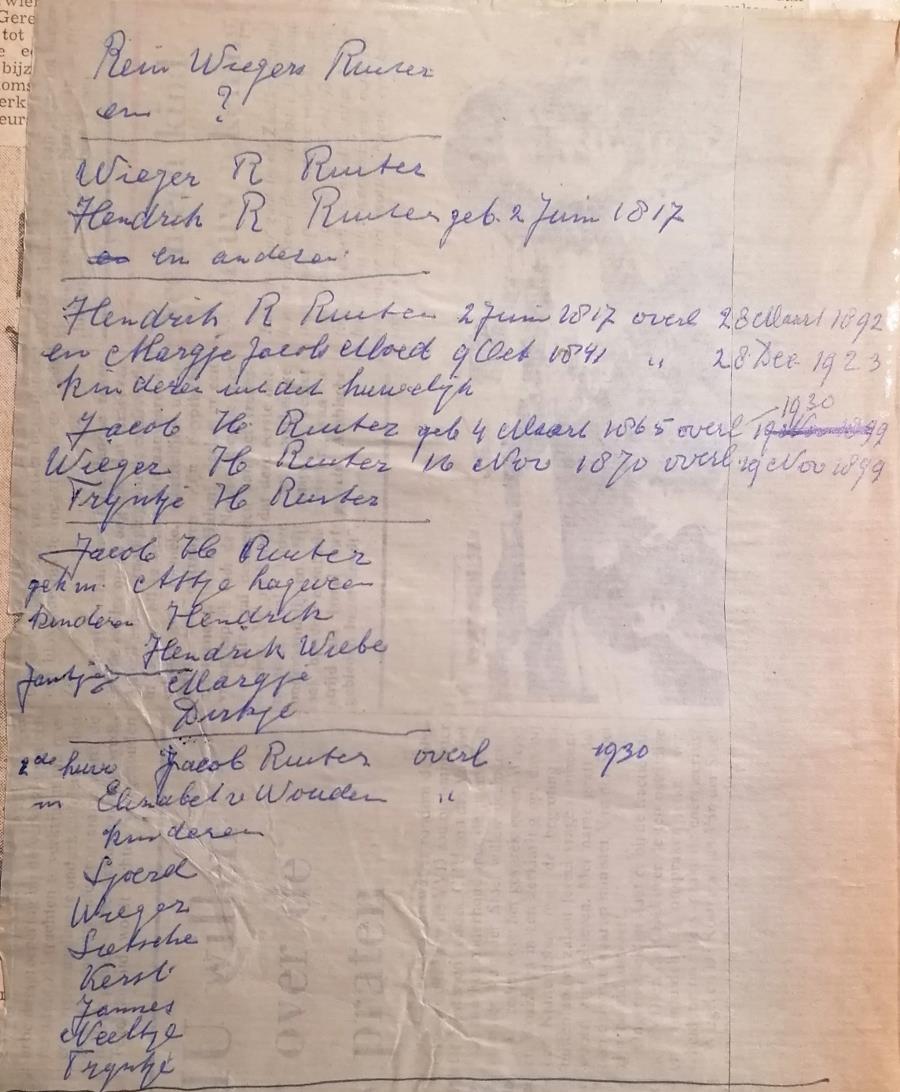 Rein Wiegers Ruiter
en ?
Wieger R Ruiter
Hendrik R Ruiter geb. 2 Juni 1817
en anderen
Hendrik R Ruiter 2 Juni 1817 overl 28 Maart 1892
en Margje Jacobs Moed 9 Oct 1841 " 28 Dec 1923
kinderen uit dit huwelijk
1930
Jacob H Ruiter geb 4 Maart 1865 overl
Wieger H Ruiter 16 Nov 1870 overl 19 Nov 1899
Tryntje H Ruiter
Jacob H Ruiter
geh m. Attje Hageveen
kinderen Hendrik
Hendrik Wiebe
Jantje Margje
Dirkje
2de huw Jacob Ruiter overl 1930
m Elisabet v Wouden "
kinderen
Sjoerd
Wieger
Sietsche
Kerst
Jannes
Neeltje
Tryntje
U wil
over de
praten